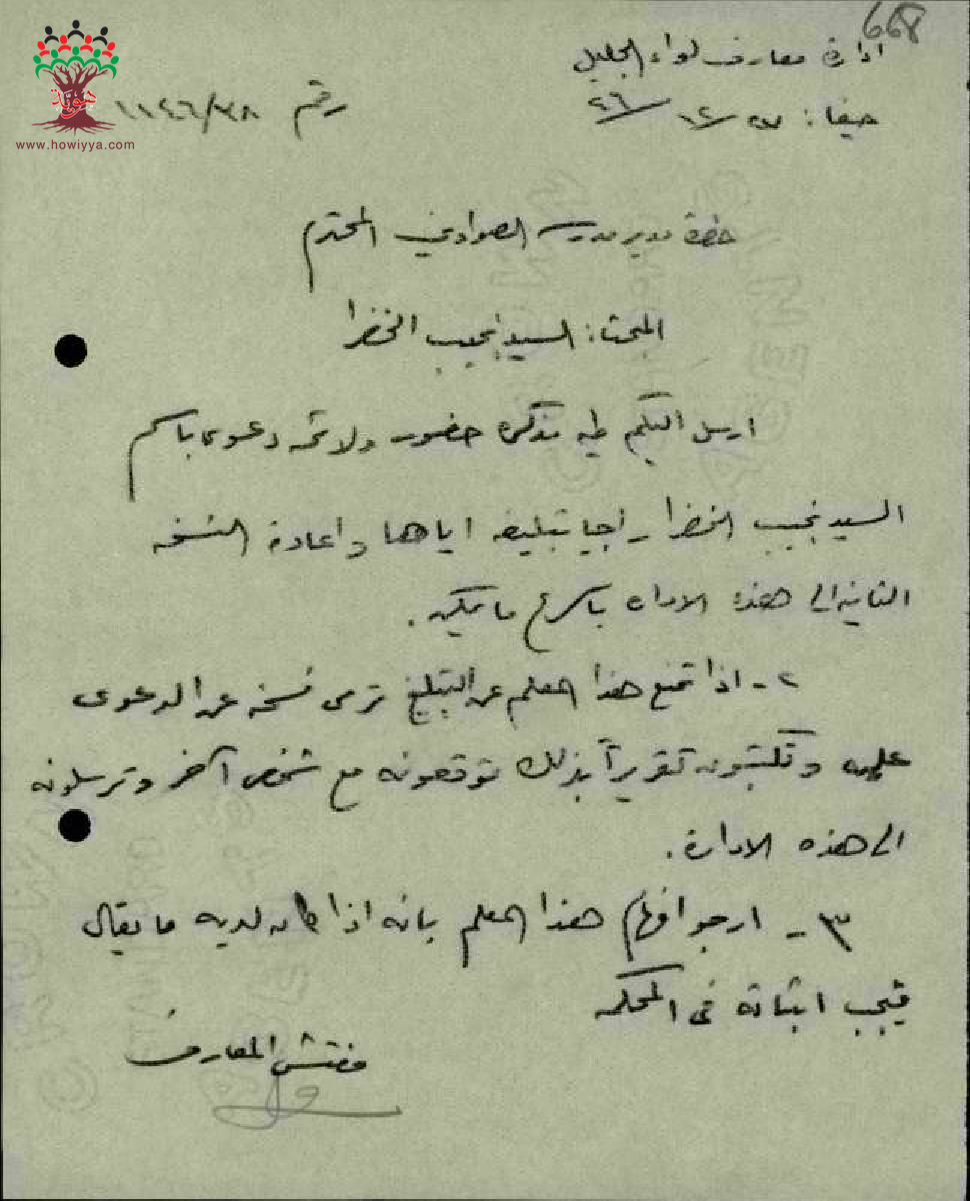 668
ادارة معارف لواء الجليل
حيفا: ٢٧/١٢/٤٦
رقم ١١٤٦/٣٨
هوية
www.howiyya.com
حضرة مدير مدرسة الصوادي المحترم
المحتا: السيد نجيب الخضرا
ارسل اليكم طيه مذكرة حضور ولائحة دعوى باسم
السيد نجيب الخضرا راجيا تبليغه اياها واعادة النسخة
الثانية الى هذه الادارة باسرع ما يمكن.
٢- اذا تمنع هذا المعلم عن التبليغ ترمى نسخة عن الدعوى
عليه وتكتبون تقريراً بذلك توقعونه مع شخص آخر وترسلونه
الى هذه الادارة.
٣- ارجو افهام هذا المعلم بانه اذا كان لديه ما يقال
فيجب اثباته في المحكمة
مفتش المعارف